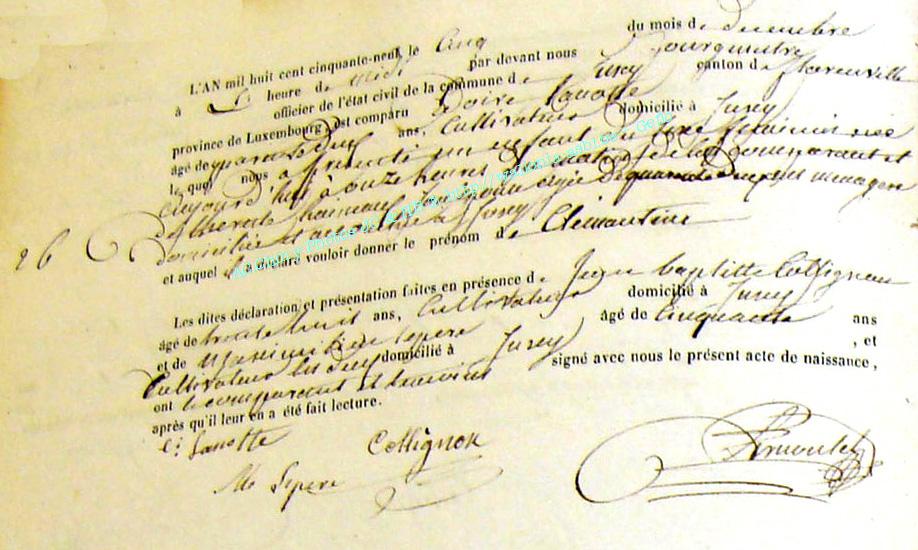 L'AN mil huit cent cinquante-neuf, le cinq du mois de decembre
à heure de midi par devant nous Bourgmestre
officier de l'état civil de la commune de Jusey canton de florenville
province de Luxembourg, est comparu Lanotte
âgé de quarante deux ans, Cultivateur domicilié à Jusey
lequel nous a présenté un enfant du sexe feminin née
aujourd'hui à onze heures du matin, de lui comparant et
de menagere
26 domiciliée à Jusey
et auquel il a déclaré vouloir donner le prénom de Clémentine
Les dites déclaration et présentation faites en présence de Jean baptiste Collignon
âgé de trente huit ans, Cultivateur domicilié à Jusey
et de Maximilien lepere âgé de Cinquante ans
Cultivateur les deux domicilié à Jusey , et
ont le comparant et temoins signé avec nous le présent acte de naissance,
après qu'il leur en a été fait lecture.
Lanotte Collignon
M Lepere